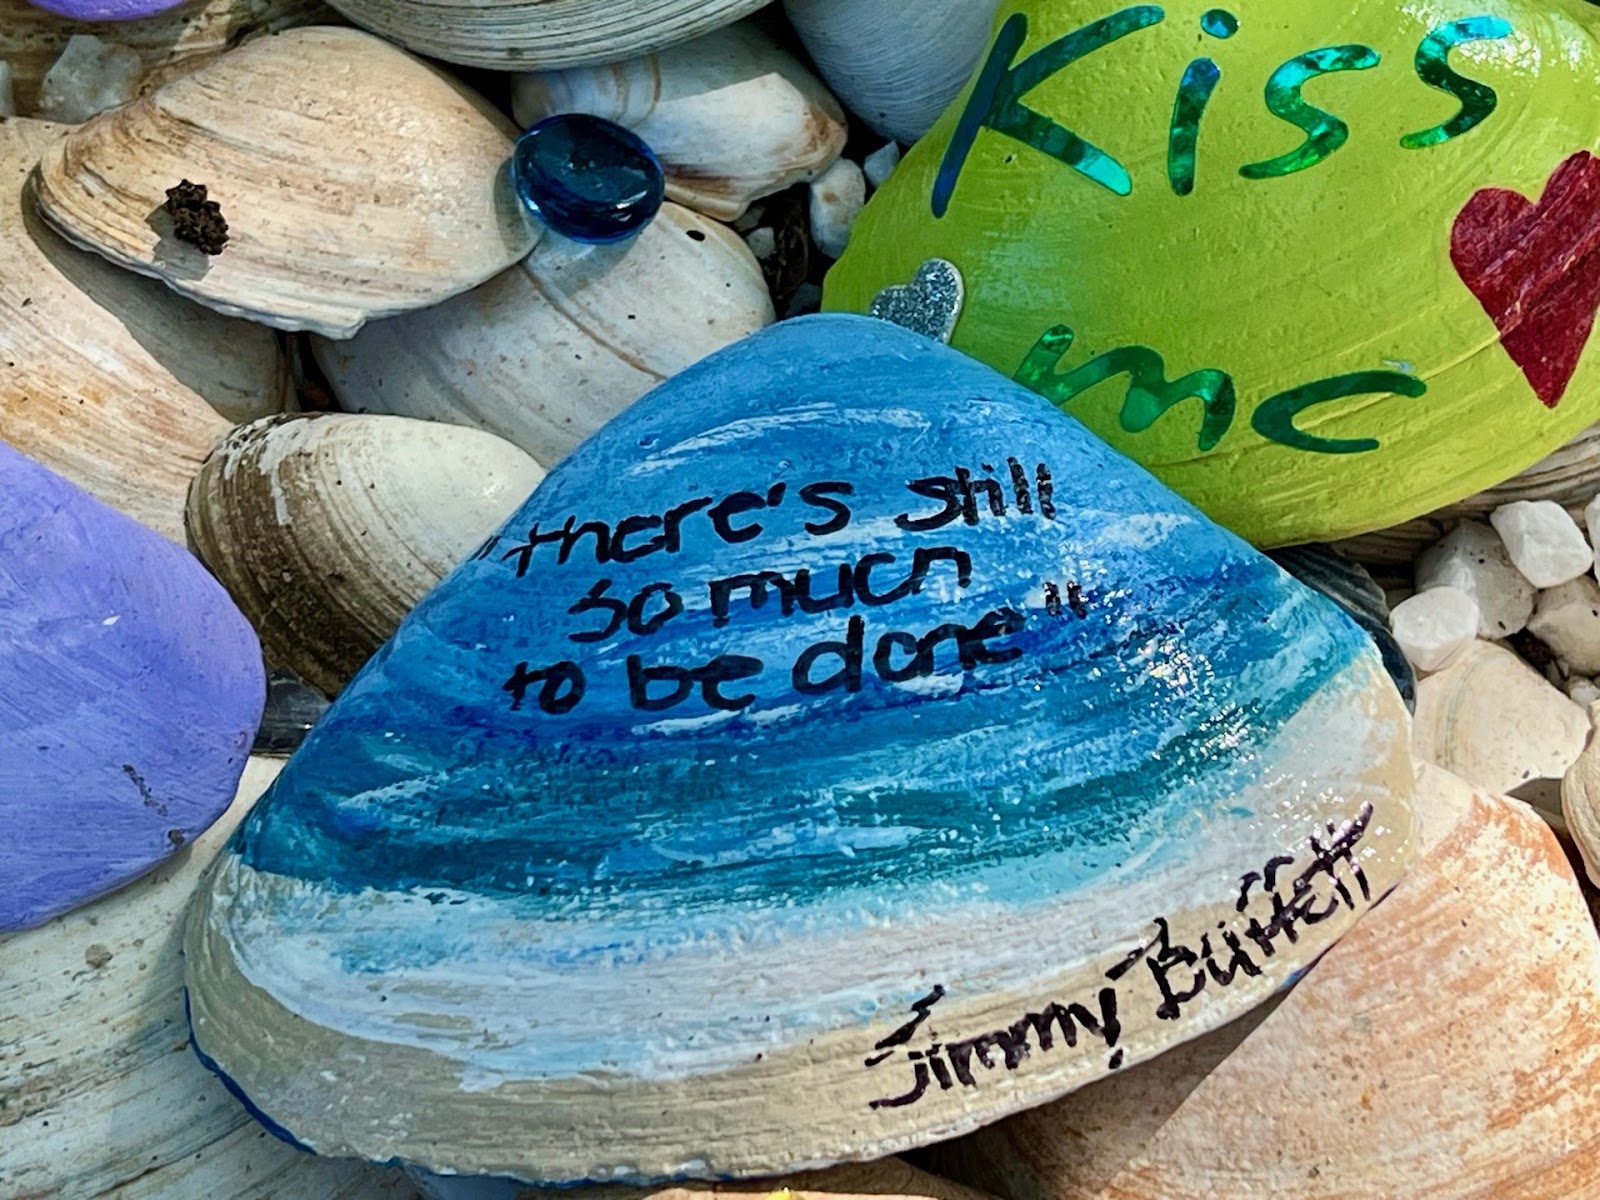 Kiss
mc
"there's still
so much
to be done"
- Jimmy Buffett